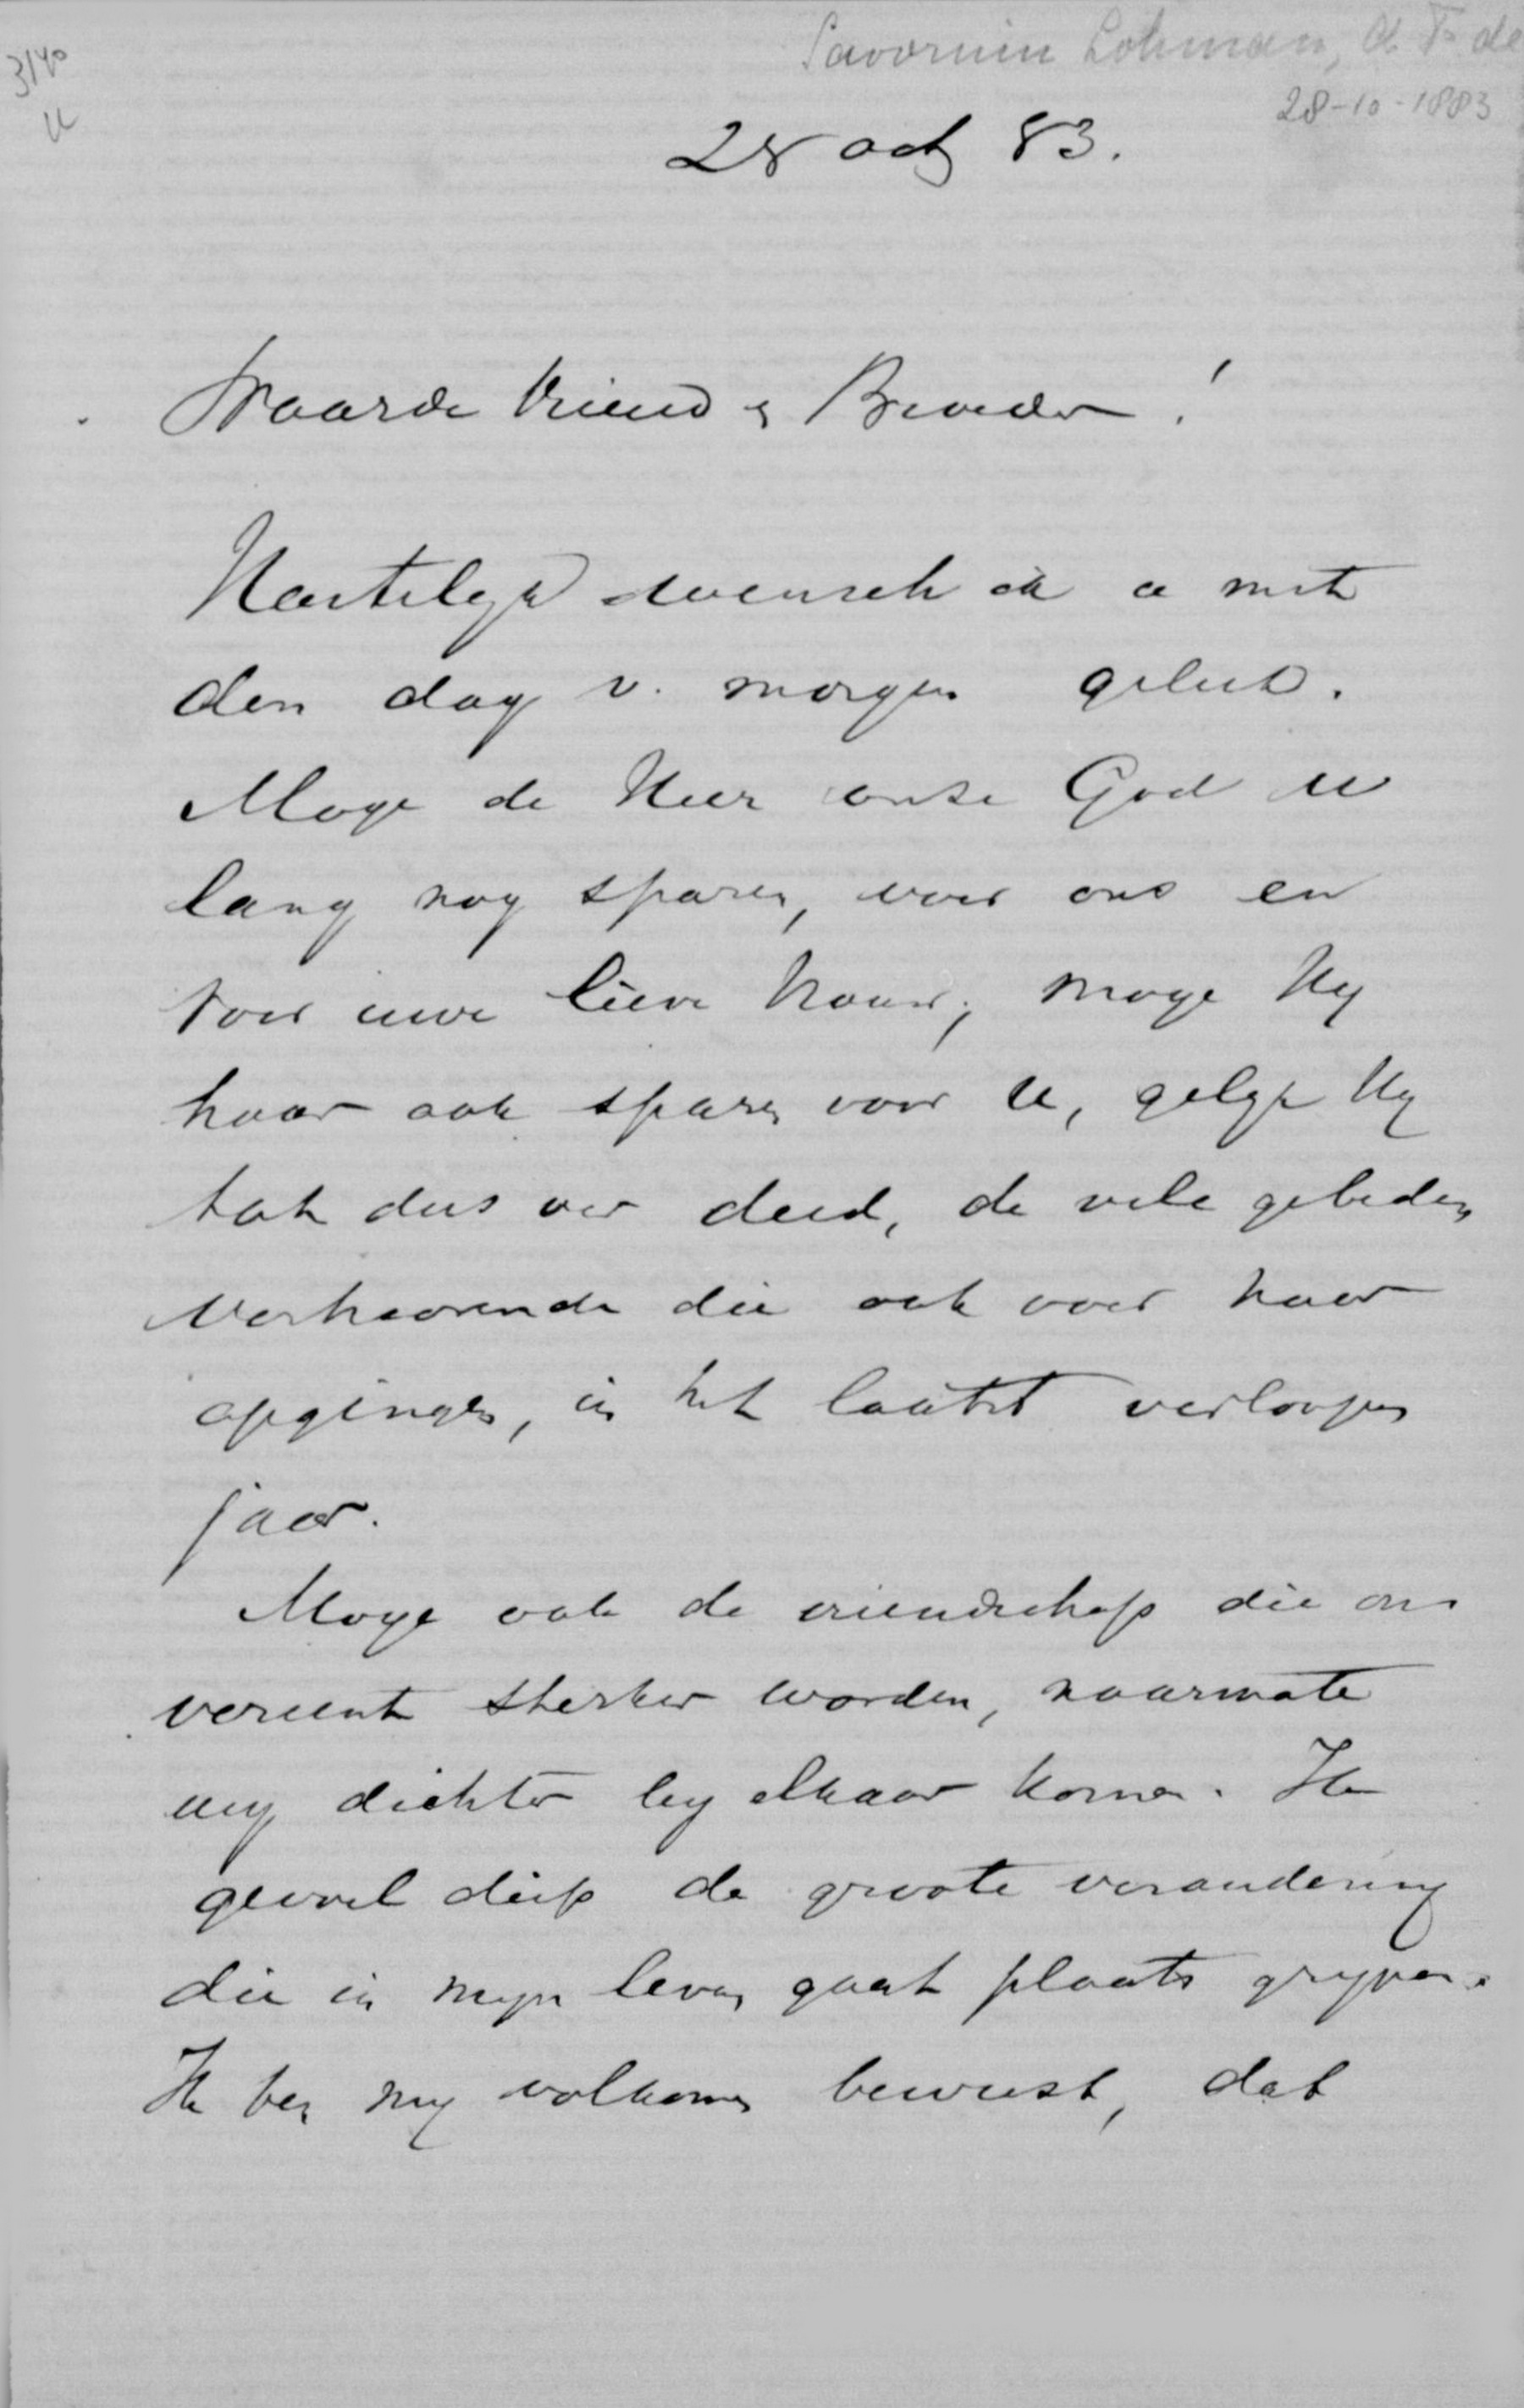 3140
Savornin Lohman, A. F. de
28-10-1883
28 oct 83.
Waarde Vriend & Broeder!
Hartelyk wensch ik u met
den dag v. morgen geluk.
Moge de Heer onze God U
lang nog sparen, voor ons en
voor uwe lieve vrouw; moge Hy
haar ook sparen voor U, gelyk Hy
tot dus ver deed, de vele gebeden
verhoorende die ook voor haar
opgingen, in het laatst verloopen
jaar.
Moge ook de vriendschap die ons
vereent sterker worden, naarmate
wy dichter by elkaar komen. Ik
gevoel diep de groote verandering
die in myn leven gaat plaats grypen.
Ik ben my volkomen bewust, dat